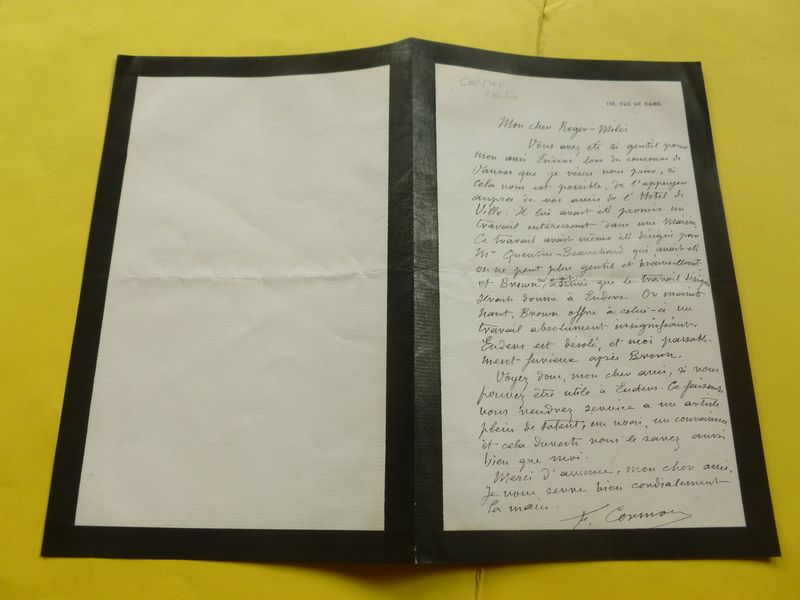 CORMON
159, RUE DE ROME
Mon cher Roger-Milès
Vous avez été si gentil pour
mon ami Enders lors du concours de
Vanves que je viens vous prier, si
cela vous est possible, de l'appuyer
auprès de vos amis de l'Hotel de
Ville. Il lui avait été promis un
travail intéressant dans une Mairie.
Ce travail avait même été désigné par
Mr Quentin-Beauchard qui avait été
on ne peut plus gentil et bienveillant
et Brown m'avait que le travail désigné
serait donné à Enders. Or mainte
nant, Brown offre à celui-ci un
travail absolument insignifiant.
Enders est désolé, et moi passable-
ment furieux après Brown.
Voyez donc, mon cher ami, si vous
pouvez être utile à Enders. Ce faisant
vous rendrez service à un artiste
plein de talent, un vrai, un convaincu
et cela vous le savez aussi
bien que moi.
Merci d'avance, mon cher ami,
je vous serre bien cordialement
la main.
F. Cormon